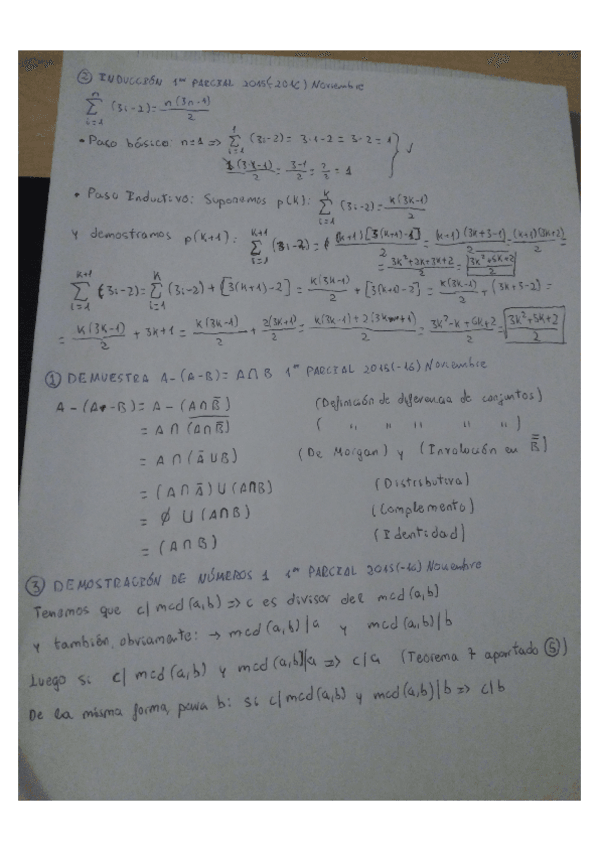 ② INDUCCIÓN 1er PARCIAL 2015(-2016) Noviembre
n∑i=1 (3i-2) = n(3n-1)/2
• Paso básico: n=1 => 1∑i=1 (3i-2) = 3·1-2 = 3-2 = 1
1(3·1-1)/2 = 3-1/2 = 2/2 = 1
• Paso Inductivo: Suponemos p(k): k∑i=1 (3i-2) = k(3k-1)/2
y demostramos p(k+1): k+1∑i=1 (3i-2) = (k+1)[3(k+1)-1]/2 = (k+1)(3k+3-1)/2 = (k+1)(3k+2)/2 =
= 3k²+2k+3k+2/2 = 3k²+5k+2/2
k+1∑i=1 (3i-2) = k∑i=1 (3i-2) + [3(k+1)-2] = k(3k-1)/2 + [3(k+1)-2] = k(3k-1)/2 + (3k+3-2) =
= k(3k-1)/2 + 3k+1 = k(3k-1)/2 + 2(3k+1)/2 = k(3k-1)+2(3k+1)/2 = 3k²-k+6k+2/2 = 3k²+5k+2/2
① DEMUESTRA A-(A-B) = A∩B 1er PARCIAL 2015(-16) Noviembre
A-(A-B) = A-(A∩B̅) (Definición de diferencia de conjuntos)
= A∩(A∩B̅)̅ ( " " " " " )
= A∩(A̅∪B) (De Morgan) y (Involución en B̿)
= (A∩A̅)∪(A∩B) (Distributiva)
= ∅ ∪ (A∩B) (Complemento)
= (A∩B) (Identidad)
③ DEMOSTRACIÓN DE NÚMEROS 1 1er PARCIAL 2015(-16) Noviembre
Tenemos que c|mcd(a,b) => c es divisor del mcd(a,b)
y también, obviamente: → mcd(a,b)|a y mcd(a,b)|b
Luego si c|mcd(a,b) y mcd(a,b)|a => c|a (Teorema 7 apartado ⑤)
De la misma forma, para b: si c|mcd(a,b) y mcd(a,b)|b => c|b